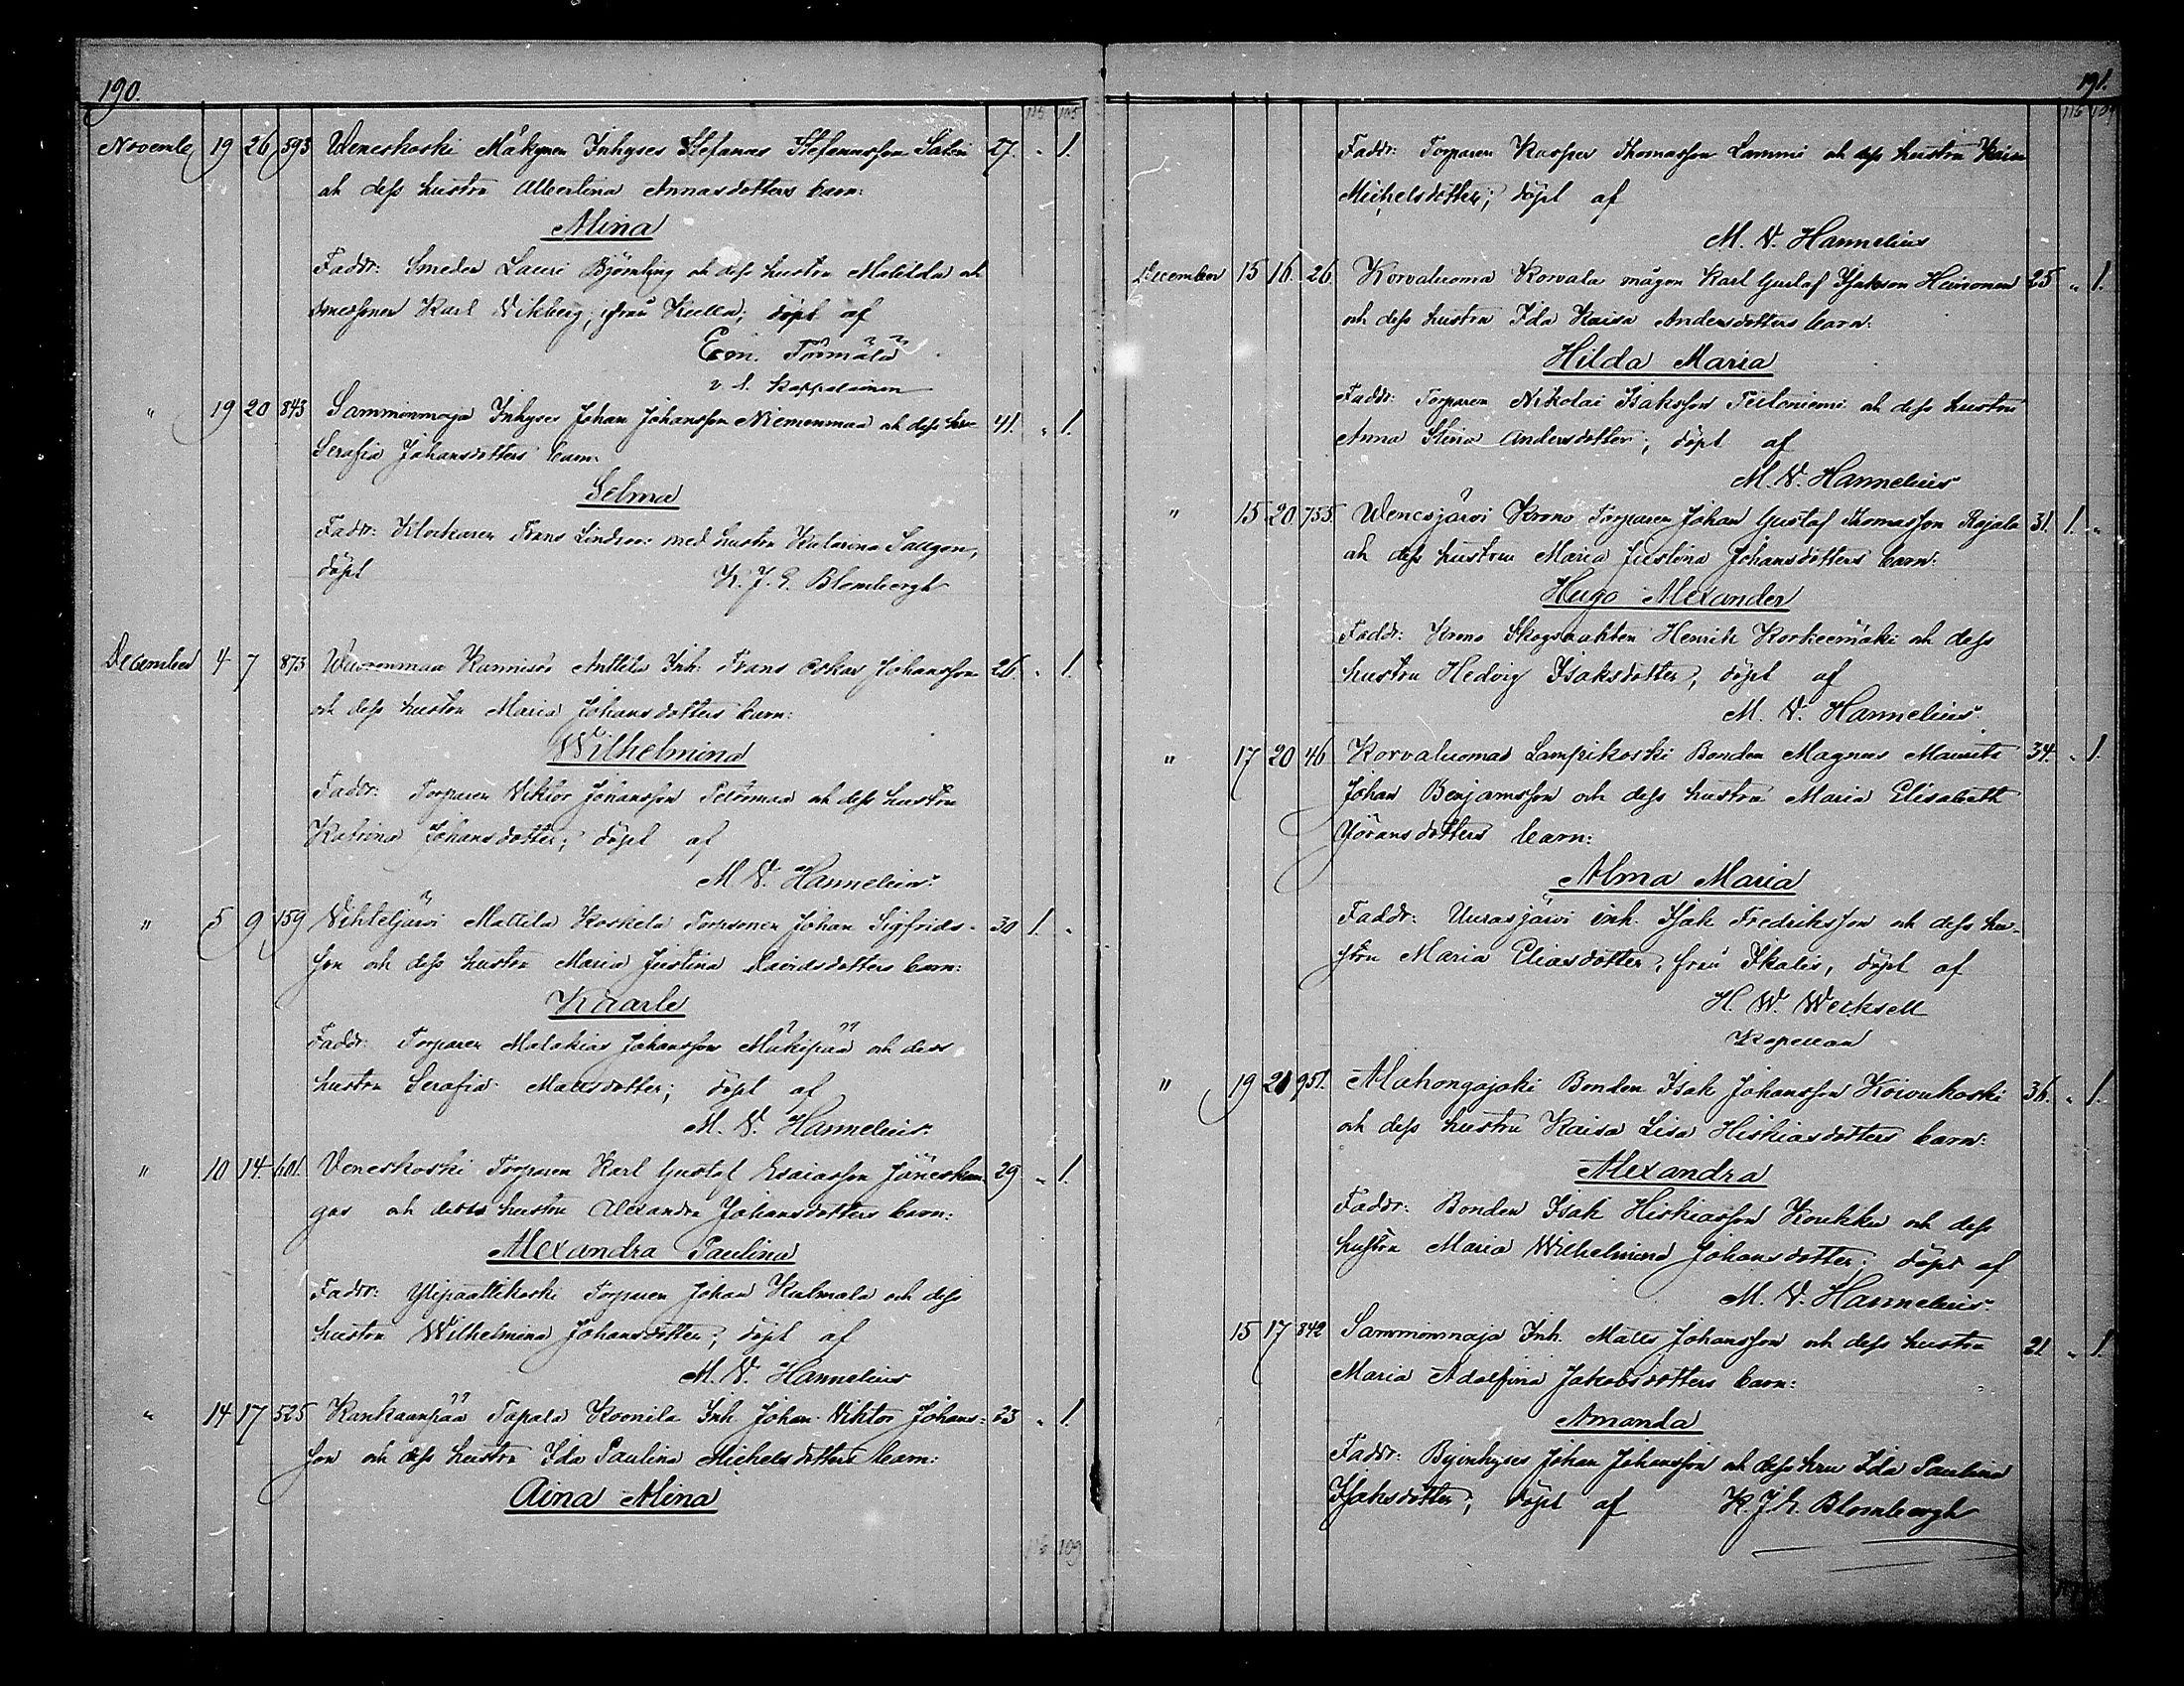 190.
115 105
November 19 26 593 Weneskoski Mäkynen Inhyses Stefanus Stefanusson Salin 27. " 1.
och dess hustru Albertina Annasdotters barn:
Alina
Faddr: Smeden Lauri Björnljng och dess hustru Matilda och
Karl Vikberg, ifrån Kulla; döpt af
Eon. Törmälä
v. t. Kappalainen
" 19 20 843 Samminmaja Inhyses Johan Johansson Niemenmaa och dess hu-
41. " 1.
Serafia Johansdotters barn:
Selma
Faddr: Klockaren Frans Lindroos med hustru Katarina
döpt K. J. E. Blombergh
December 4 7 873 Wuorenmaa Kannisto Anttila Inh. Frans Oskar Johansson 26. " 1.
och dess hustru Maria Johansdotters barn:
Wilhelmina
Faddr: Torparen Viktor Johansson Peltomaa och dess hustru
Katrina Johansdotter; döpt af
M. V. Hannelius.
" 5 9 159 Vihteljärvi Mattila Koskela Torpsonen Johan Sigfrids- 30 1. "
son och dess hustru Maria Justina Davidsdotters barn:
Kaarle
Faddr: Torparen Malakias Johansson Mäkipää och dess
hustru Serafia Mattsdotter; döpt af
M. V. Hannelius.
" 10 14 601. Veneskoski Torparen Karl Gustaf Esaiasson Jäneskan- 29 " 1.
gas och dess hustru Alexandra Johansdotters barn:
Alexandra Paulina
Faddr: Ylipaattikoski Torparen Johan Kulmala och dess
hustru Wilhelmina Johansdotter; döpt af
M. V. Hannelius
" 14 17 525 Kankaanpää Tapala Koonila Inh. Johan Viktor Johans- 23 " 1.
son och dess hustru Ida Paulina Michelsdotters barn:
Aina Alina
116 109
191.
116 109
Faddr: Torparen Kasper Thomasson Lammi och dess hustru Kaisa
Michelsdotter; döpt af
M. V. Hannelius
December 15 16. 26. Korvaluoma Korvala mågen Karl Gustaf Isakson Heinonen 25 " 1.
och dess hustru Ida Kaisa Andersdotters barn:
Hilda Maria
Faddr: Torparen Nikolai Isaksson Peltoniemi och dess hustru
Anna Stina Andersdotter; döpt af
M. V. Hannelius
" 15 20 755. Wenesjärvi Krono Torparen Johan Gustaf Thomasson Rajala 31. 1. "
och dess hustru Maria Justina Johansdotters barn:
Hugo Alexander
Faddr: Krono Skogsvakten Henrik Korkeemäki och dess
hustru Hedvig Isaksdotter, döpt af
M. V. Hannelius.
" 17 20 46 Korvaluoma Lampikoski Bonden Magnus Maurits 34. " 1.
Johan Benjamsson och dess hustru Maria Elisabeth
Göransdotters barn:
Alma Maria
Faddr: Uurasjärvi inh. Isak Fredriksson och dess hu-
stru Maria Eliasdotter, från Ikalis, döpt af
H. W. Wecksell
Kapellan
" 19 20 951. Alahongajoki Bonden Isak Johansson Koivukoski 36. " 1.
och dess hustru Kaisa Lisa Hiskiasdotters barn:
Alexandra
Faddr: Bonden Isak Hiskiasson Koukku och dess
hustru Maria Wilhelmina Johansdotter; döpt af
M. V. Hannelius
15 17 842 Samminmaja Inh. Matts Johansson och dess hustru 21. " 1.
Maria Adolfina Jakobsdotters barn:
Amanda
Faddr: Byinhyses Johan Johansson och dess hru Ida Paulina
Isaksdotter; döpt af K. J. E. Blombergh